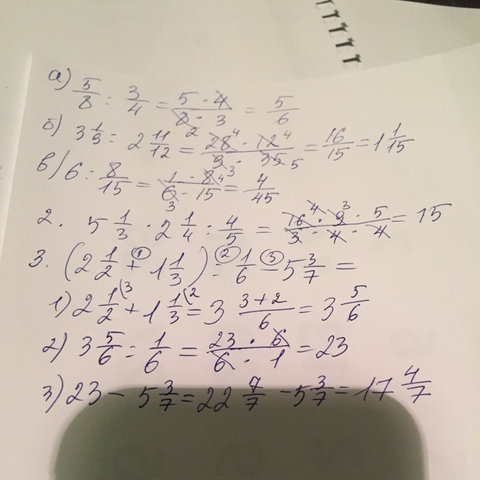 а) 5/8 : 3/4 = 5 · 4 / 8 · 3 = 5/6
2
б) 3 1/9 : 2 11/12 = 28 · 12 / 9 · 35 = 16/15 = 1 1/15
4 4 3 5
в) 6 : 8/15 = 1 · 8 / 6 · 15 = 4/45
4 3
2. 5 1/3 · 2 1/4 : 4/5 = 16 · 9 · 5 / 3 · 4 · 4 = 15
4 3
3. (2 1/2 + 1 1/3) : 1/6 - 5 3/7 =
① ② ③
1) 2 1/2 (3 + 1 1/3 (2 = 3 3+2/6 = 3 5/6
2) 3 5/6 : 1/6 = 23 · 6 / 6 · 1 = 23
3) 23 - 5 3/7 = 22 7/7 - 5 3/7 = 17 4/7